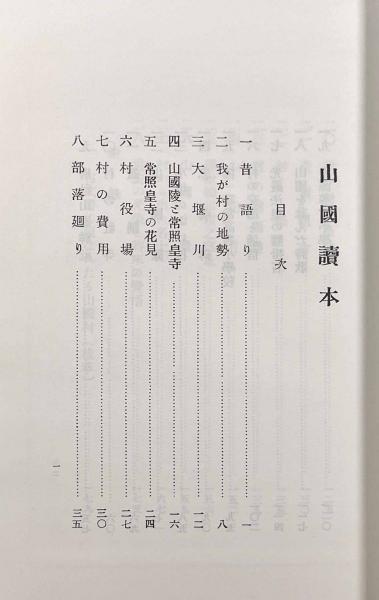 山國讀本
目次
一 昔語り……一
二 我が村の地勢……八
三 大堰川……一二
四 山國陵と常照皇寺……一六
五 常照皇寺の花見……二四
六 村役場……二七
七 村の費用……三〇
八 部落廻り……三五
一